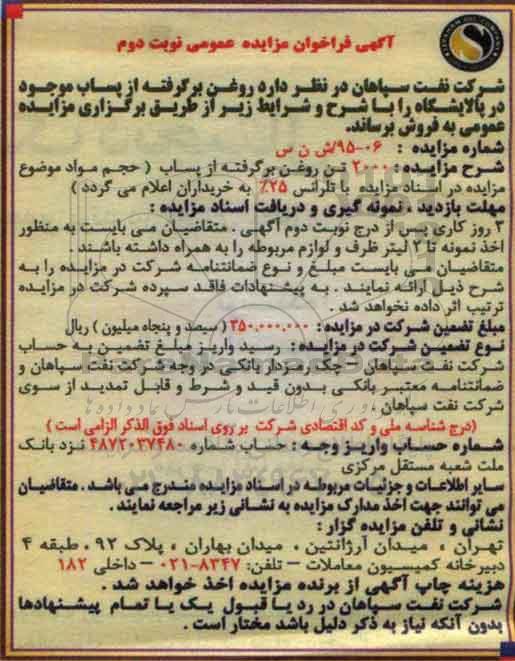 آگهی فراخوان مزایده عمومی نوبت دوم
شرکت نفت سپاهان در نظر دارد روغن برگرفته از پساب موجود
در پالایشگاه را با شرح و شرایط زیر از طریق برگزاری مزایده
عمومی به فروش برساند.
شماره مزایده : ۰۶-۹۵/ش ن س
شرح مزایده : ۲۰۰۰ تن روغن برگرفته از پساب ( حجم مواد موضوع
مزایده در اسناد مزایده با تلرانس ۲۵٪ به خریداران اعلام می گردد )
مهلت بازدید ، نمونه گیری و دریافت اسناد مزایده :
۳ روز کاری پس از درج نوبت دوم آگهی . متقاضیان می بایست به منظور
اخذ نمونه تا ۲ لیتر ظرف و لوازم مربوطه را به همراه داشته باشند .
متقاضیان می بایست مبلغ و نوع ضمانتنامه شرکت در مزایده را به
شرح ذیل ارائه نمایند . به پیشنهادات فاقد سپرده شرکت در مزایده
ترتیب اثر داده نخواهد شد .
مبلغ تضمین شرکت در مزایده : ۳۵۰.۰۰۰.۰۰۰ ( سیصد و پنجاه میلیون ) ریال
نوع تضمین شرکت در مزایده : رسید واریز مبلغ تضمین به حساب
شرکت نفت سپاهان - چک رمزدار بانکی در وجه شرکت نفت سپاهان و
ضمانتنامه معتبر بانکی بدون قید و شرط و قابل تمدید از سوی
شرکت نفت سپاهان .
(درج شناسه ملی و کد اقتصادی شرکت بر روی اسناد فوق الذکر الزامی است )
شماره حساب واریز وجه : حساب شماره ۴۸۷۲۰۳۷۴۸۰ نزد بانک
ملت شعبه مستقل مرکزی
سایر اطلاعات و جزئیات مربوطه در اسناد مزایده مندرج می باشد . متقاضیان
می توانند جهت اخذ مدارک مزایده به نشانی زیر مراجعه نمایند .
نشانی و تلفن مزایده گزار :
تهران ، میدان آرژانتین ، میدان بهاران ، پلاک ۹۲ ، طبقه ۴
دبیرخانه کمیسیون معاملات – تلفن: ۸۳۴۷-۰۲۱ – داخلی ۱۸۲
هزینه چاپ آگهی از برنده مزایده اخذ خواهد شد .
شرکت نفت سپاهان در رد یا قبول یک یا تمام پیشنهادها
بدون آنکه نیاز به ذکر دلیل باشد مختار است .